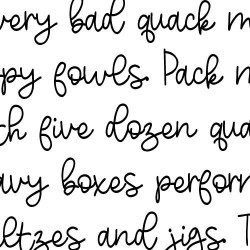 very bad quack m
py fowls. Pack m
ch five dozen qua
avy boxes perform
altzes and jigs. T